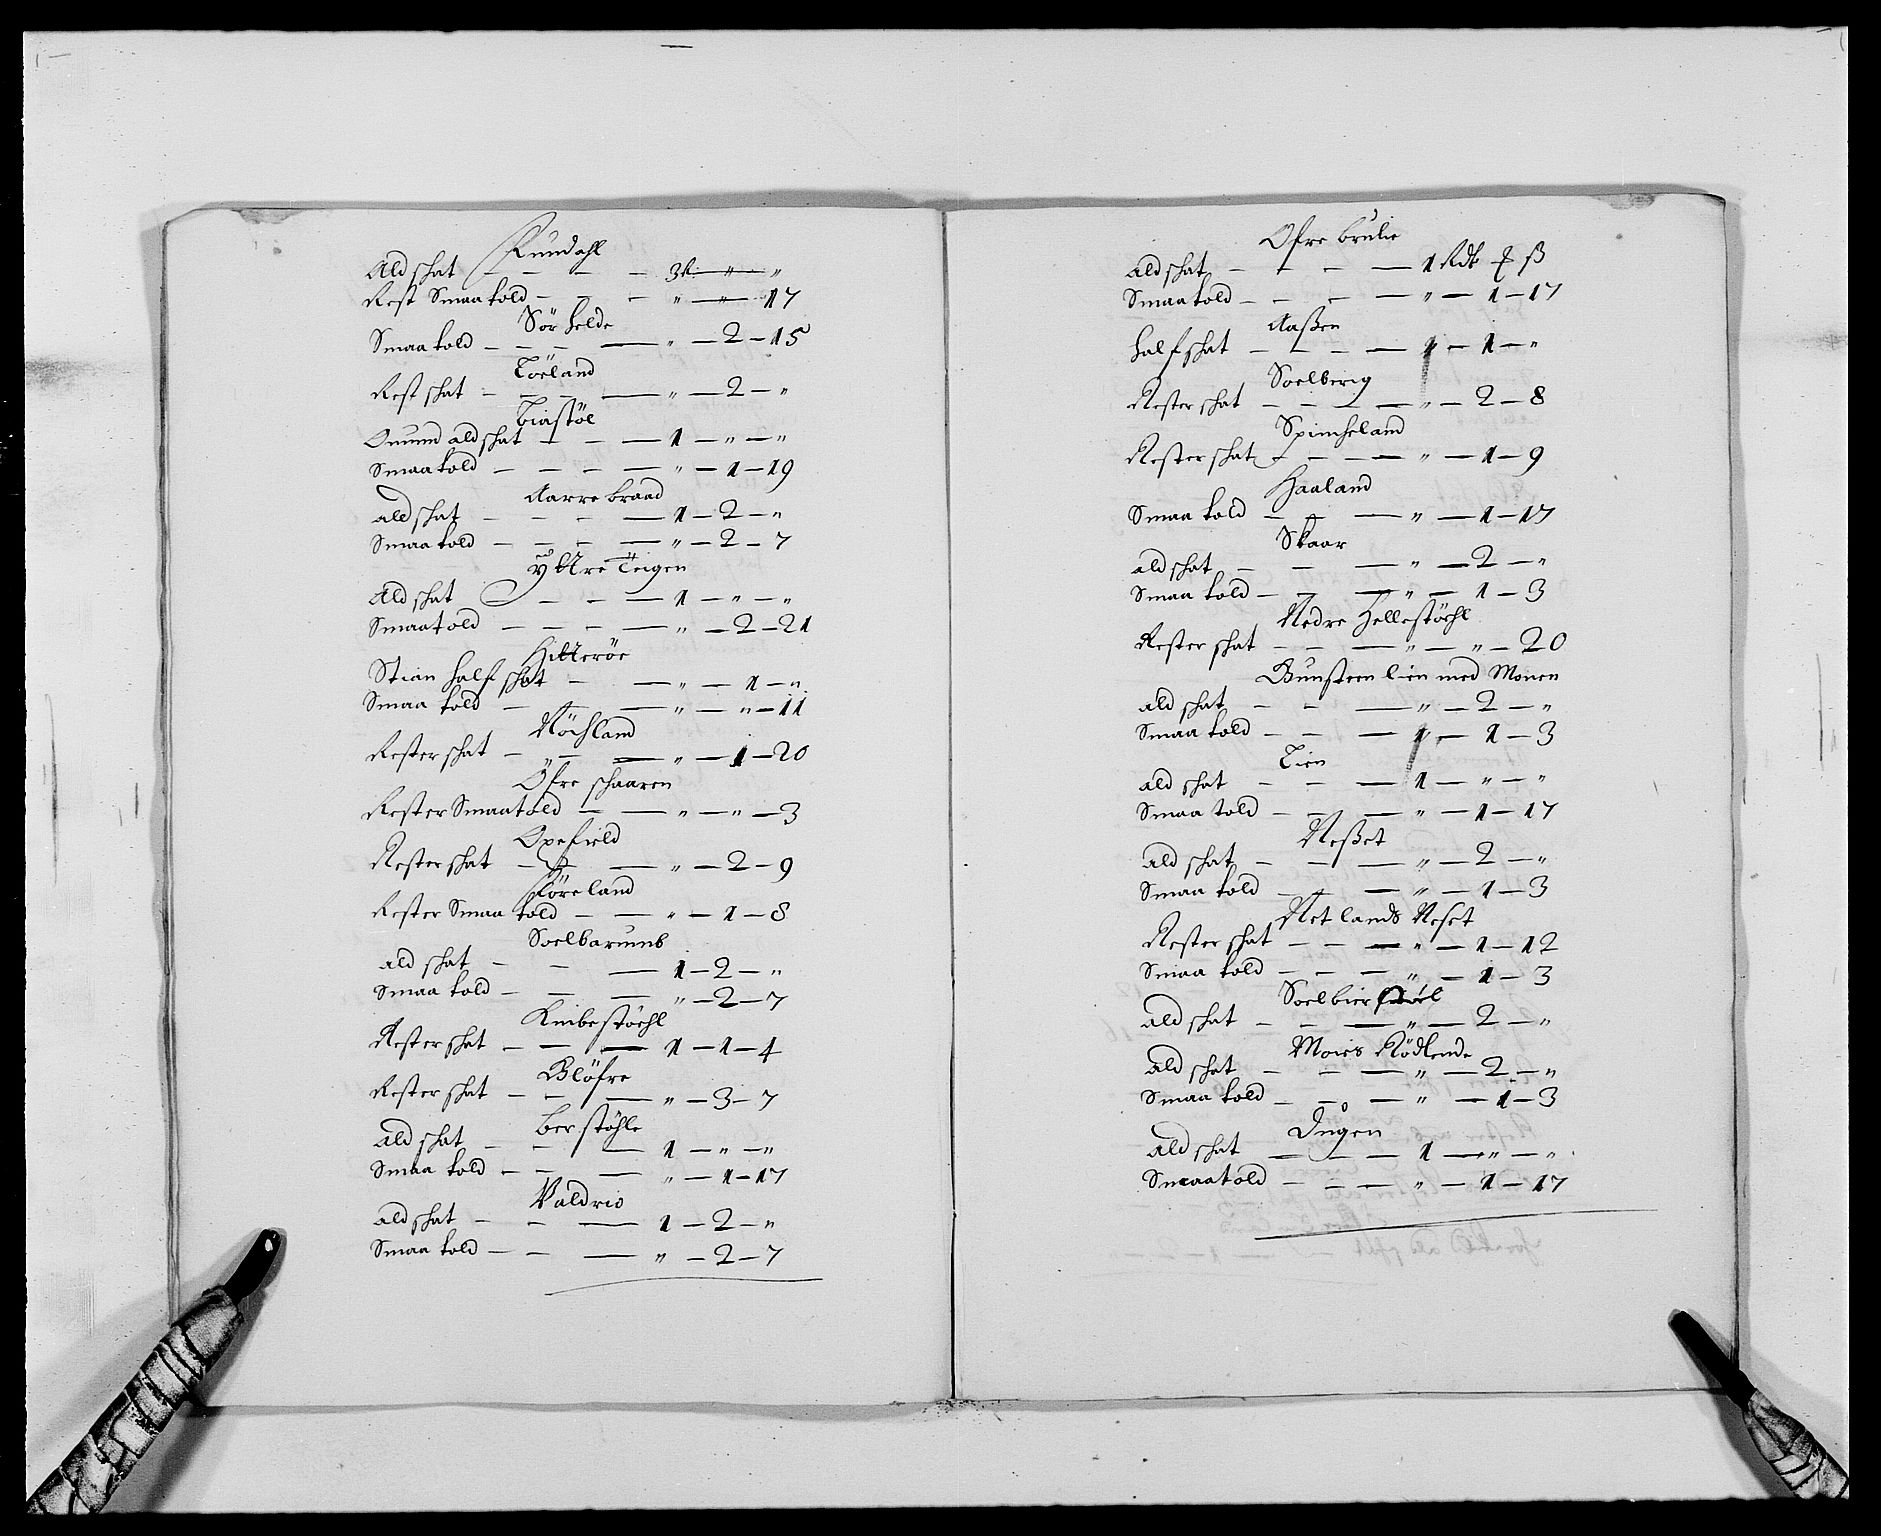 Rundahl
Ald skat — — — — 3 — „ — „
Rest Smaa told — — — „ — „ — 17
Sör helde
Smaa told — — — — „ — 2 — 15
Töeland
Rest skat — — — — „ — 2 — „
Tiastöl
Onund ald skat — — — 1 — „ — „
Smaa told — — — — „ — 1 — 19
Aarrebraad
ald skat — — — — 1 — 2 — „
Smaa told — — — — „ — 2 — 7
Yttre Teigen
Ald skat — — — 1 — „ — „
Smaa told — — — — „ — 2 — 21
Hitteröe
Stian half skat — — „ — 1 — „
Smaa told — — — „ — „ — 11
Röchland
Rester skat — — — „ — 1 — 20
Öfre schaaren
Rester Smaa told — — „ — „ — 3
Oxefield
Rester skat — — — „ — 2 — 9
Föreland
Rester Smaa told — — „ — 1 — 8
Soelbarumb
ald skat — — — 1 — 2 — „
Smaa told — — — „ — 2 — 7
Knibestöehl
Rester skat — — — 1 — 1 — 4
Blöfre
Rester skat — — — „ — 3 — 7
berstöhle
ald skat — — — 1 — „ — „
Smaa told — — — „ — 1 — 17
Valdris
ald skat — — — 1 — 2 — „
Smaa told — — — „ — 2 — 7
Ofre brulie
ald skat — — — — 1 Rdr ß
Smaa told — — — — „ — 1 — 17
Aaßen
half skat — — — — 1 — 1 — „
Soelberig
Rester skat — — — — „ — 2 — 8
Spimheland
Rester skat — — — „ — 1 — 9
Haaland
Smaa told — — — „ — 1 — 17
Skaar
ald skat — — — „ — 2 — „
Smaa told — — — „ — 1 — 3
Nedre Hellestöehl
Rester skat — — — „ — „ — 20
Bunsteen lien med Monen
ald skat — — — „ — 2 — „
Smaa told — — — 1 — 1 — 3
Lien
ald skat — — — 1 — „ — „
Smaa told — — — „ — 1 — 17
Neßet
ald skat — — — „ — 2 — „
Smaa told — — — „ — 1 — 3
Netlands Neset
Rester skat — — — „ — 1 — 12
Smaa told — — — „ — 1 — 3
Soelbierstöel
ald skat — — — „ — 2 — „
Moies Rödlende
ald skat — — — „ — 2 — „
Smaa told — — — „ — 1 — 3
Dugen
ald skat — — — 1 — „ — „
Smaa told — — — „ — 1 — 17